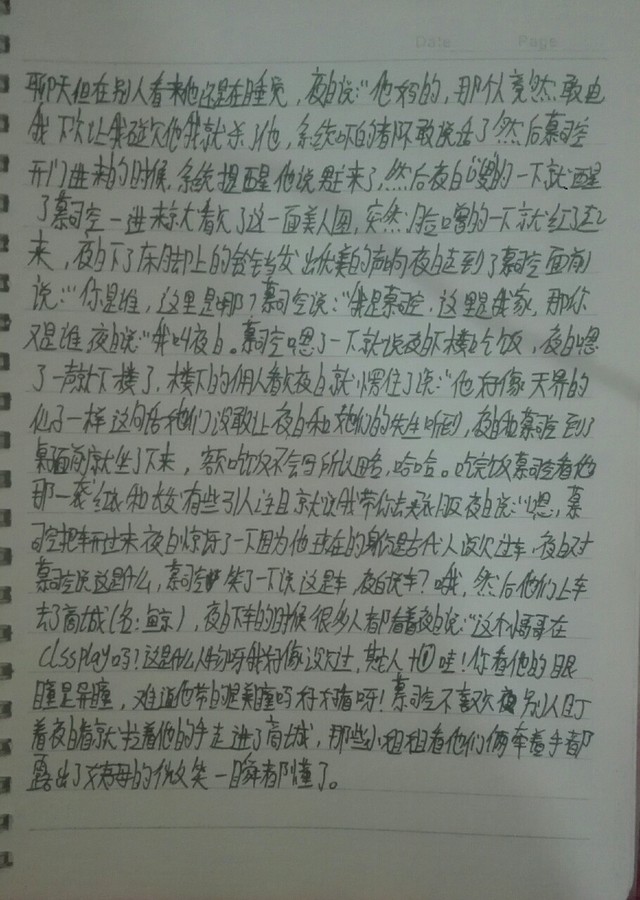 Date Page
聊天但在别人看来他还是在睡觉，夜白说:“他妈的，那个人竟然敢电
我下次让我碰见他我就杀了他，系统吓的都不敢说话了然后慕司空
开门进来的时候，系统提醒他说男主来了，然后夜白噌的一下就醒
了慕司空一进来就看见了这一面美人图，突然脸噌的一下就红了起
来，夜白下了床脚上的铃铛发出优美的声响夜白走到了慕司空面前
说:“你是谁，这里是哪？慕司空说:“我是慕司空，这里是我家，那你
又是谁夜白说:“我叫夜白。慕司空嗯了一下就说夜白下楼吃饭，夜白嗯
了一声就下楼了，楼下的佣人看见夜白就愣住了说:“他好像天界的
仙子一样这句话他们没敢让夜白和她们的先生听到，夜白和慕司空到了
桌面前就坐了下来，额吃饭不会写所以略，哈哈。吃完饭慕司空看他
那一袭红衣和长发有些引人注目就说我带你去买衣服夜白说:“嗯，慕
司空把车开过来夜白惊讶了一下因为他现在的身份是古代人没见过车，夜白对
慕司空说这是什么，慕司空笑了一下说这是车夜白说车？哦，然后他们上车
去了商城(名:鲸)，夜白下车的时候很多人都看着夜白说:“这个小哥哥在
clssplay吗？这是什么人物呀我好像没见过，其他人+1哇！你看他的眼
瞳是异瞳，难道他带的是美瞳吗好好看呀！慕司空不喜欢别人盯
着夜白看就拉着他的手走进了商城，那些小姐姐看他们俩牵着手都
露出了姨母的微笑一瞬都懂了。